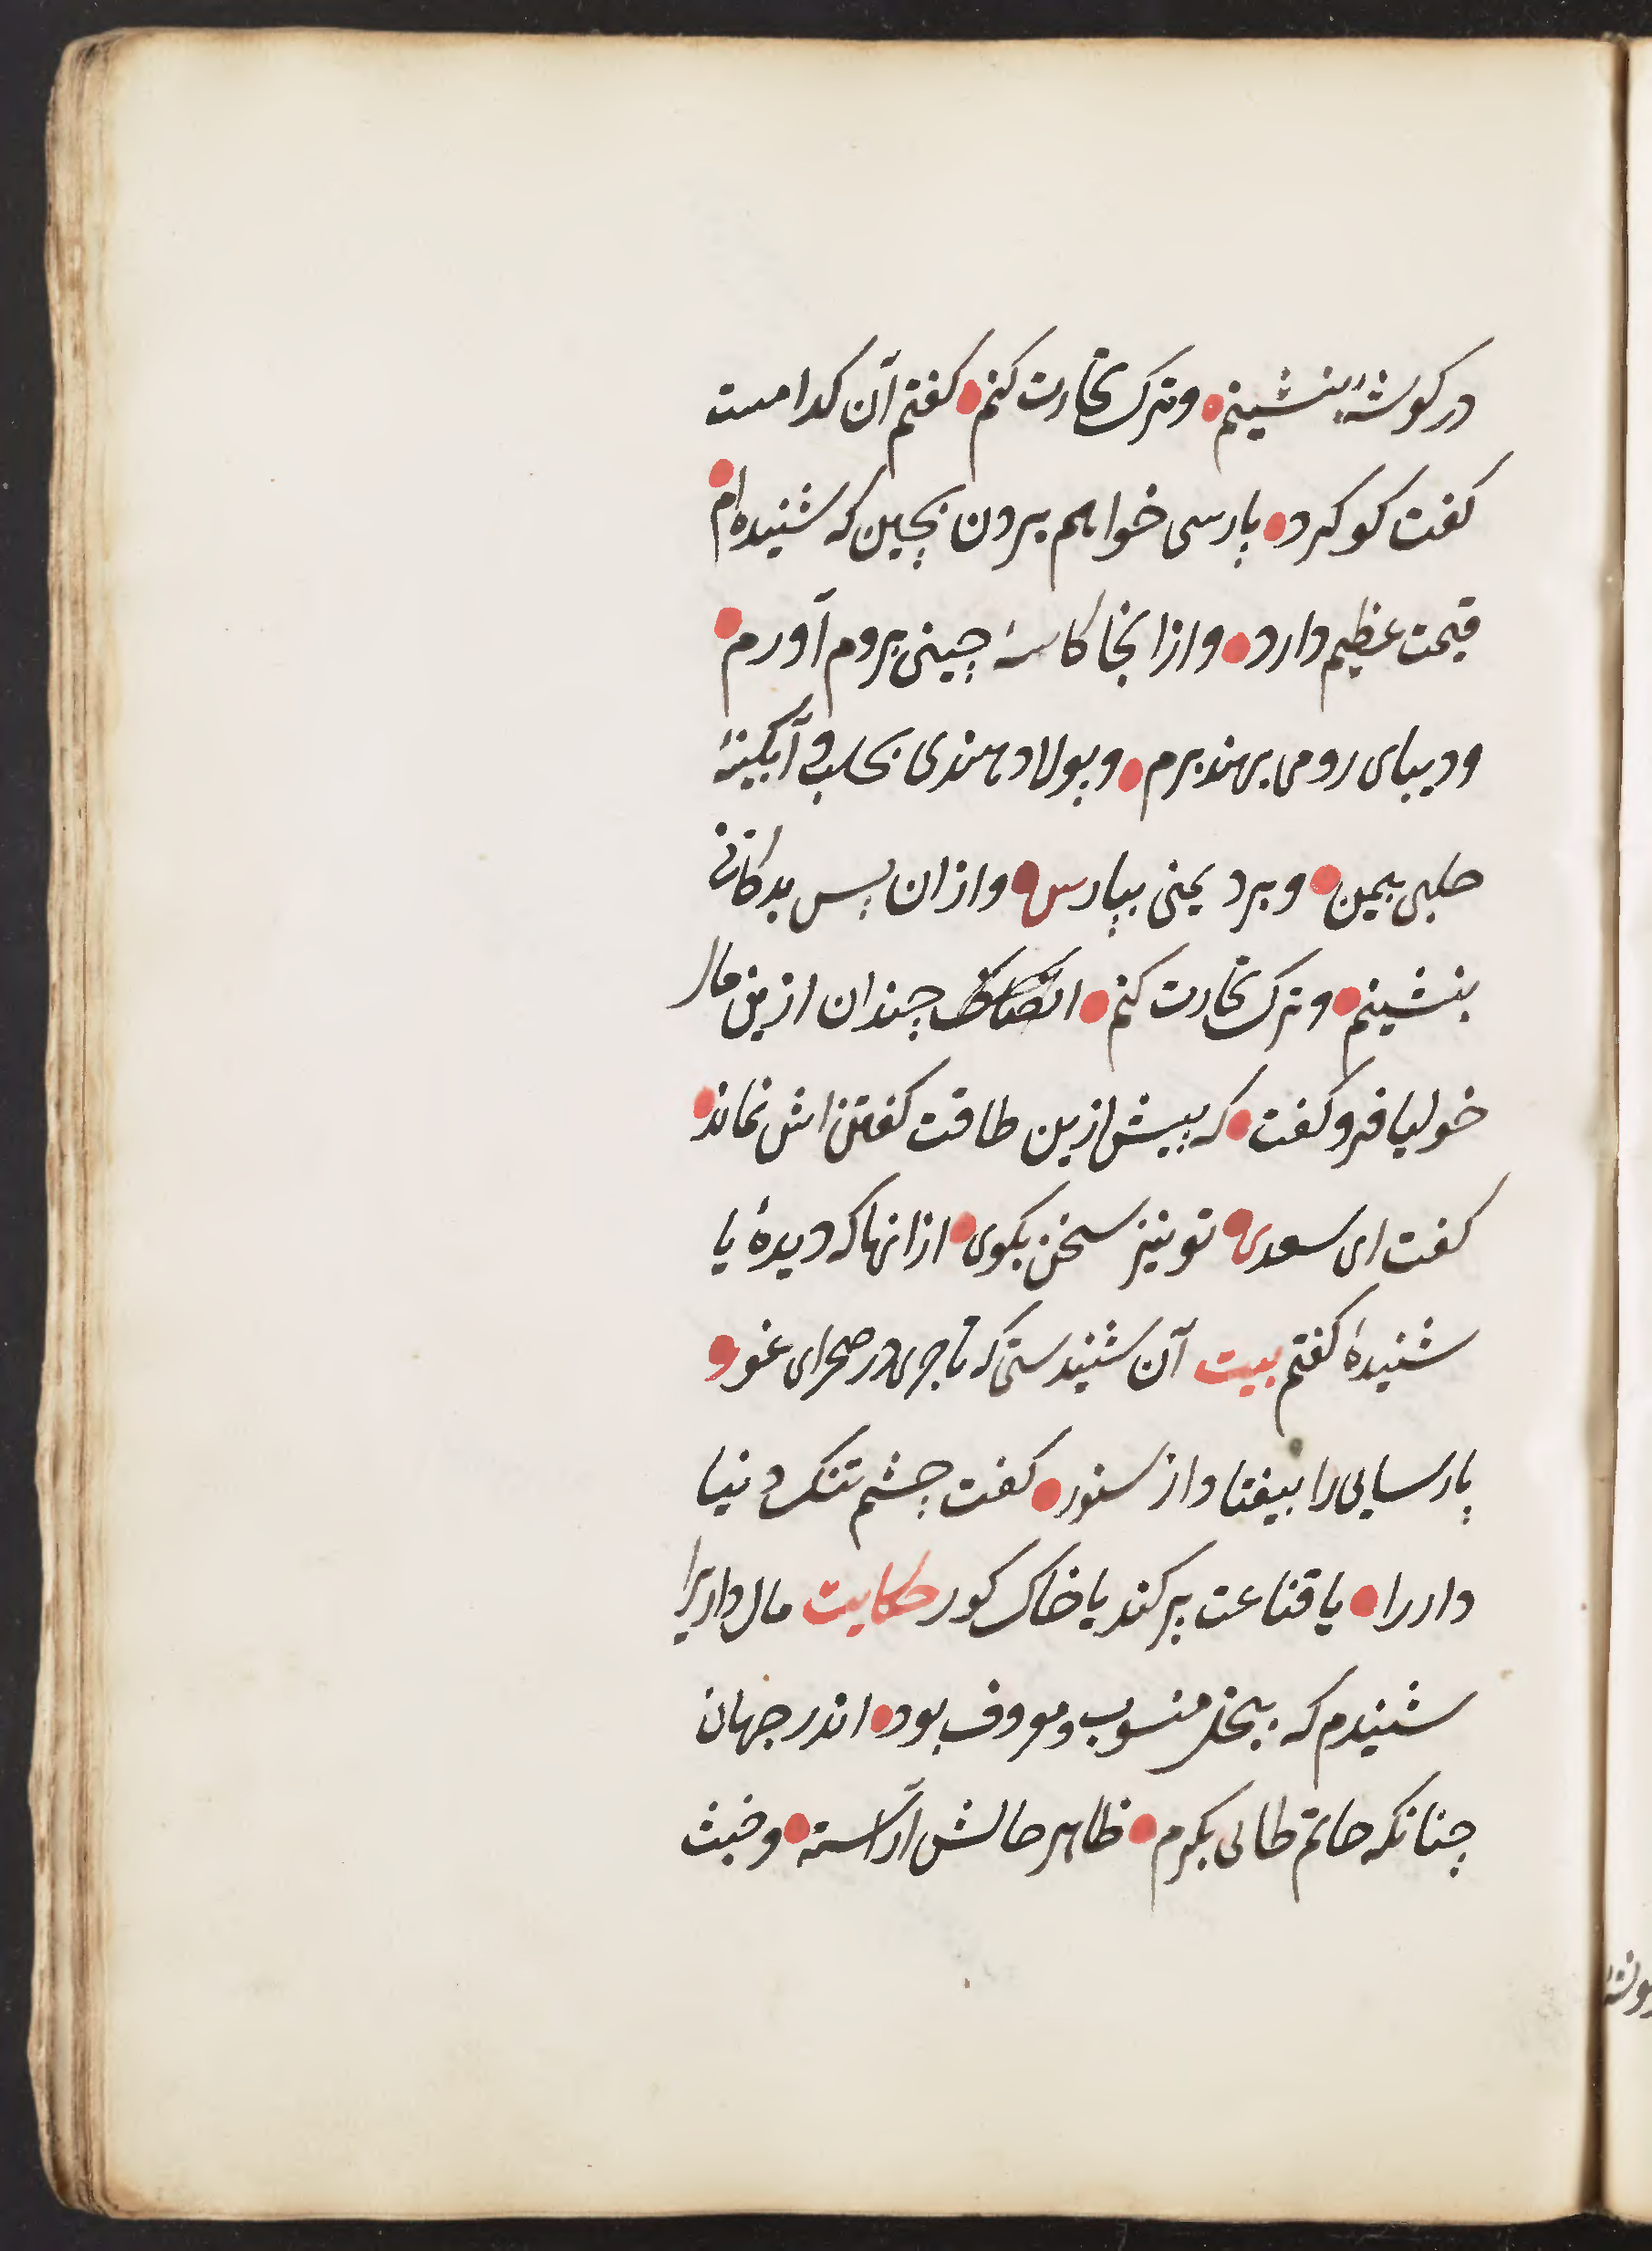 در کوشهٔ بنشینم وترک تجارت کنم کفتم آن کدامست
کفت کوکرد پارسی خواهم بردن بچین که شنیده‌ام
قیمت عظیم دارد وازانجا کاسهٔ چینی بروم آورم
ودیبای رومی بهند برم وپولاد هندی بحلب وآبکینهٔ
حلبی بیمن وبرد یمنی بپارس وازان پس بدکانی
بنشینم وترک تجارت کنم چندان ازین مال
خولیا فرو کفت که پیش ازین طاقت کفتن‌اش نماند
کفت ای سعدی تو نیز سخن بکوی ازانها که دیدهٔ یا
شنیدهٔ کفتم بیت آن شنیدستی که تاجری در صحرای غور
پارسایی را بیفتاد از ستور کفت چشم تنک دنیا
دار را یا قناعت پر کند یا خاک کور حکایت مال داریرا
شنیدم که ببخل منسوب ومعروف بود اندر جهان
چنانکه حاتم طائی بکرم ظاهر حالش آراسته وخبث